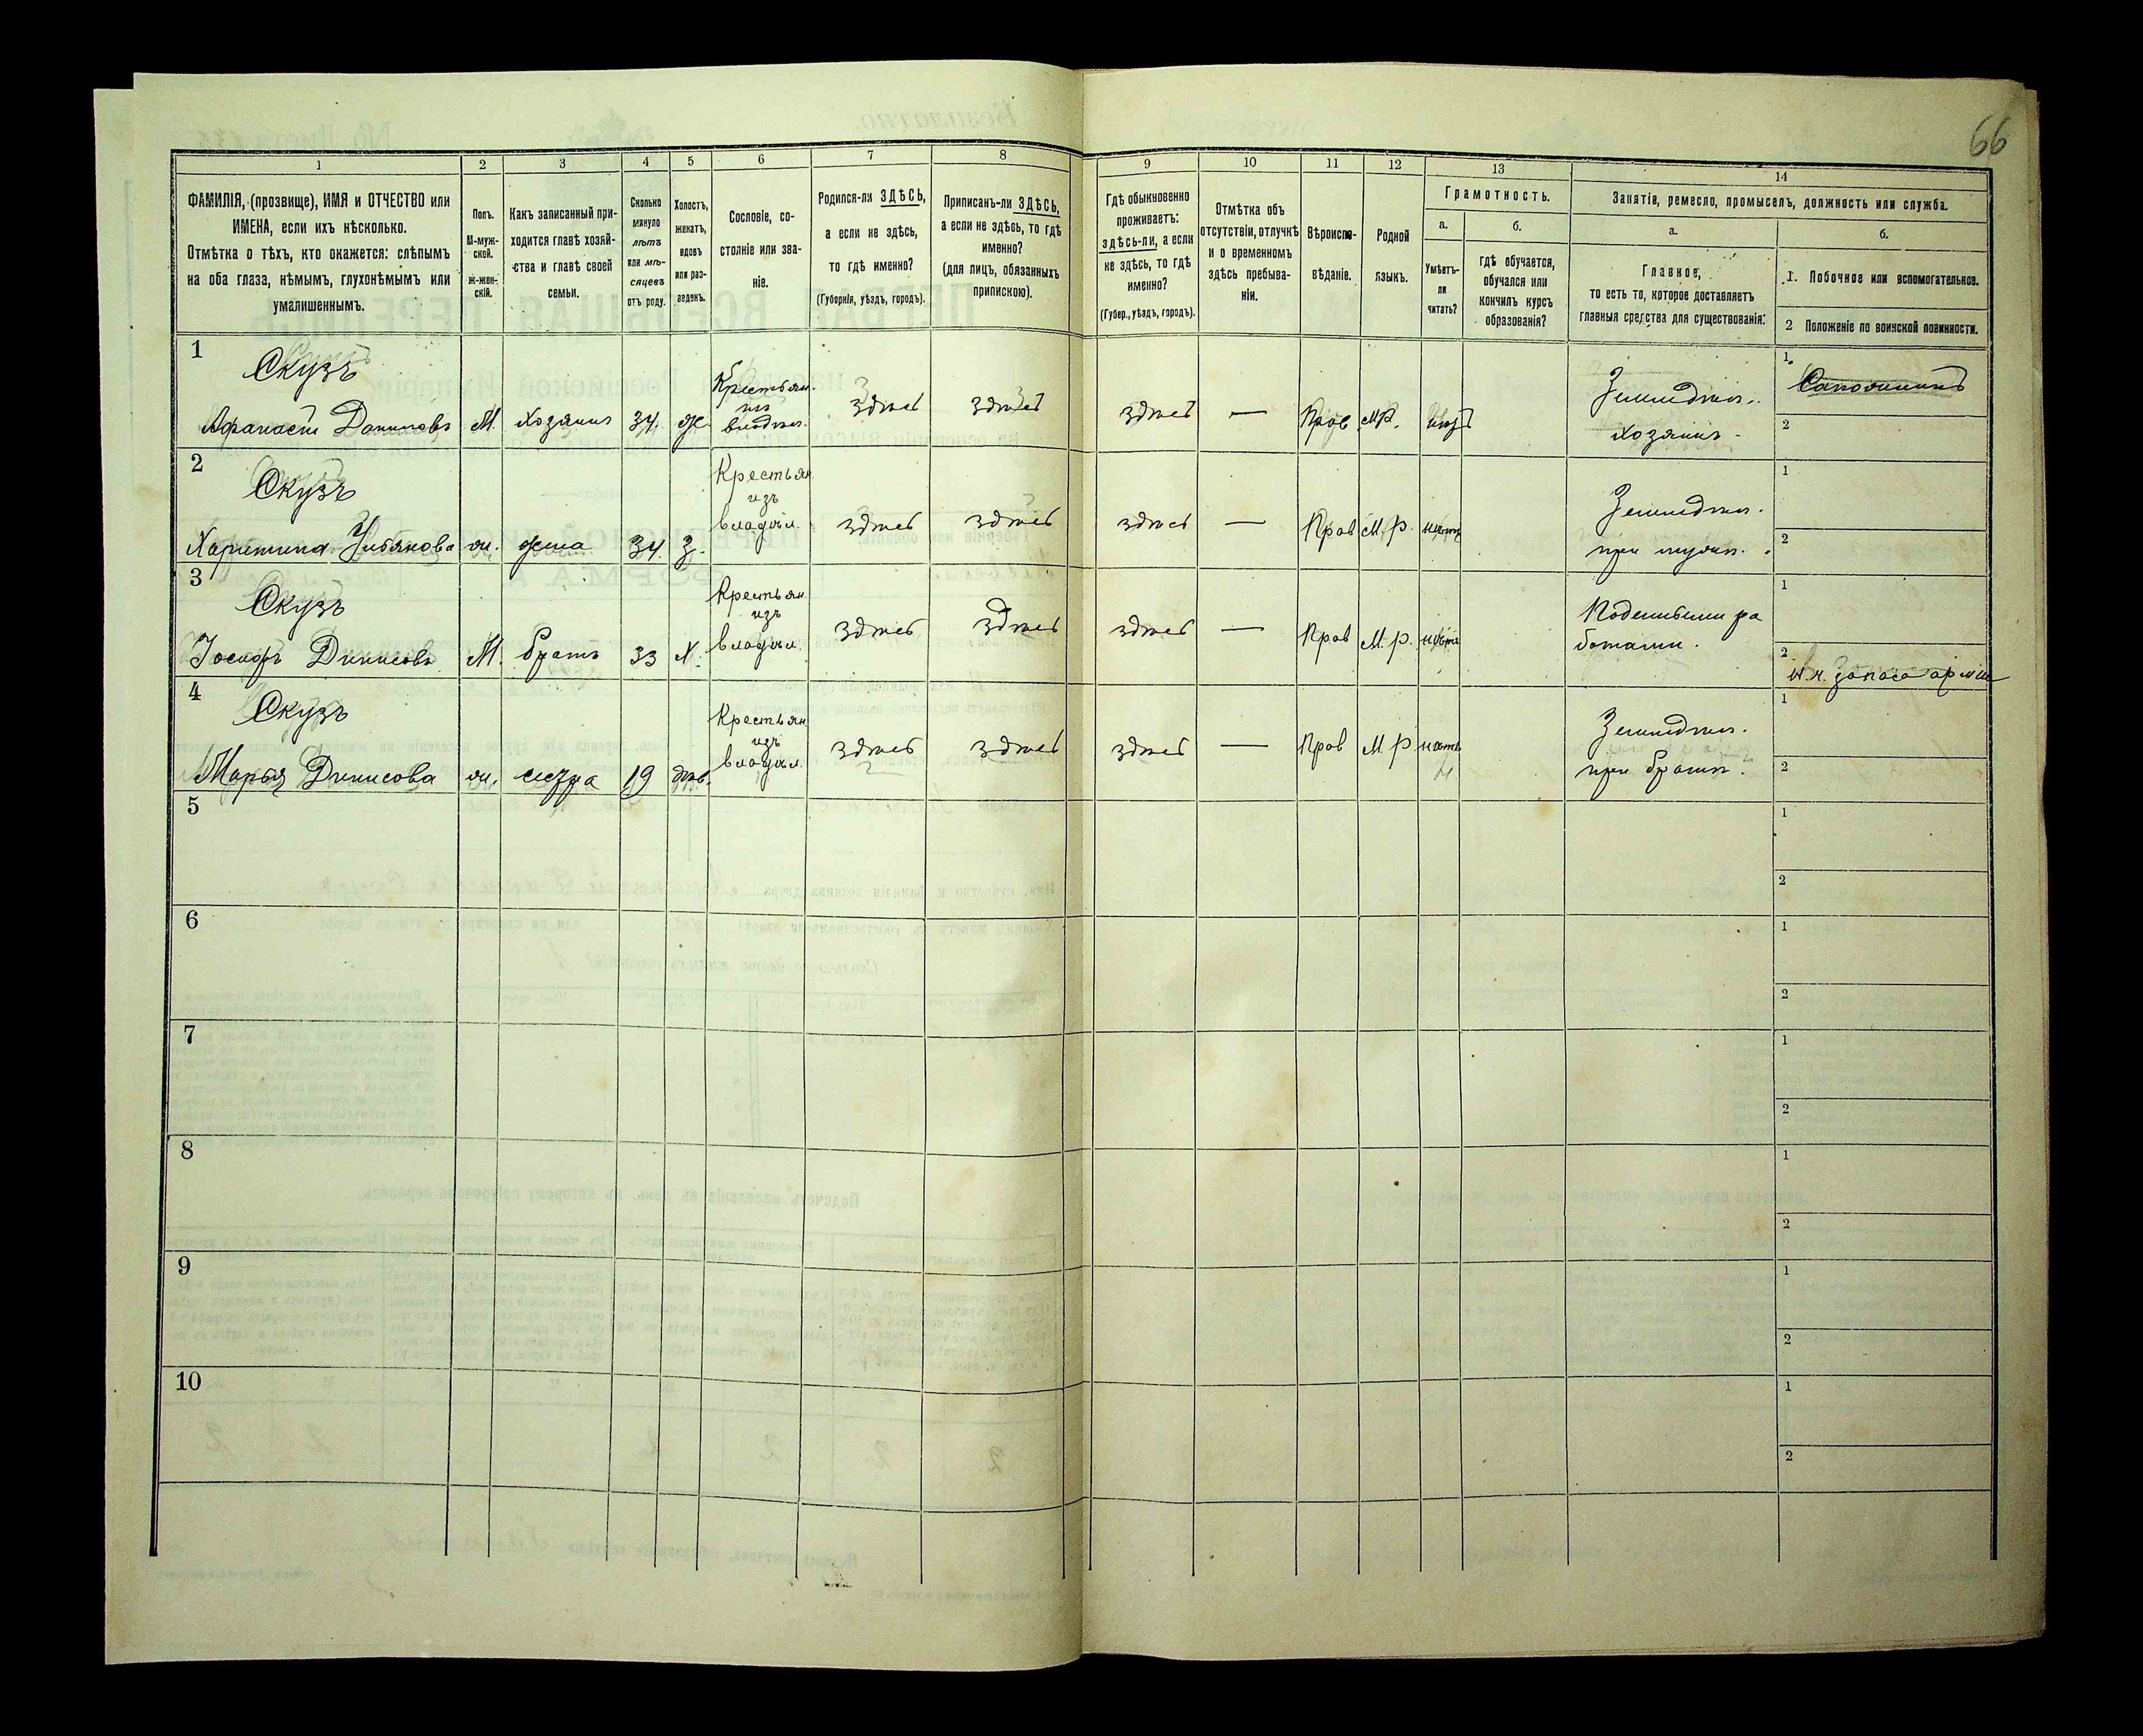 66
1
2
3
4
5
6
7
8
9
10
11
12
13
14
ФАМИЛІЯ, (прозвище), ИМЯ и ОТЧЕСТВО или
ИМЕНА, если ихъ нѣсколько.
Отмѣтка о тѣхъ, кто окажется: слѣпымъ
на оба глаза, нѣмымъ, глухонѣмымъ или
умалишеннымъ.
Полъ.
М-муж-
ской.
Ж-жен-
скій.
Какъ записанный при-
ходится главѣ хозяй-
ства и главѣ своей
семьи.
Сколько
минуло
лѣтъ
или мѣ-
сяцевъ
отъ роду.
Холостъ,
женатъ,
вдовъ
или раз-
веденъ.
Сословіе, со-
стояніе или зва-
ніе.
Родился-ли ЗДѢСЬ,
а если не здѣсь,
то гдѣ именно?
(Губернія, уѣздъ, городъ).
Приписанъ-ли ЗДѢСЬ,
а если не здѣсь, то гдѣ
именно?
(для лицъ, обязанныхъ
припискою).
Гдѣ обыкновенно
проживаетъ:
здѣсь-ли, а если
не здѣсь, то гдѣ
именно?
(Губер., уѣздъ, городъ).
Отмѣтка объ
отсутствіи, отлучкѣ
и о временномъ
здѣсь пребыва-
ніи.
Вѣроиспо-
вѣданіе.
Родной
языкъ.
Грамотность.
а.
Умѣетъ-
ли
читать?
б.
гдѣ обучается,
обучался или
кончилъ курсъ
образованія?
Занятіе, ремесло, промыселъ, должность или служба.
а.
Главное,
то есть то, которое доставляетъ
главныя средства для существованія:
б.
1. Побочное или вспомогательное.
2 Положеніе по воинской повинности.
1
Скузъ
Афанасій
М.
хозяинъ
34.
ж.
Крестьян.
изъ
владѣл.
здѣсь
здѣсь
здѣсь
—
Прав.
М.Р.
Земледѣл.
хозяинъ
1.
2
2
Скузъ
Харитина
жена
34.
З.
Крестьян
изъ
владѣл.
здѣсь
здѣсь
здѣсь
—
Прав
М.р.
нѣтъ
Земледѣл.
при мужѣ.
1
2
3
Скузъ
Денисовъ
М.
братъ
33
Х.
Крестьян
изъ
владѣл.
здѣсь
здѣсь
здѣсь
—
Прав
М.р.
нѣтъ
Поденными ра
ботами.
1
2
запаса арміи
4
Скузъ
Марья Денисова
ж.
сестра
19
дѣв.
Крестьян
изъ
владѣл.
здѣсь
здѣсь
здѣсь
—
Прав
М.р
нѣтъ
Земледѣл.
при братѣ.
1
2
5
1
2
6
1
2
7
1
2
8
1
2
9
1
2
10
1
2